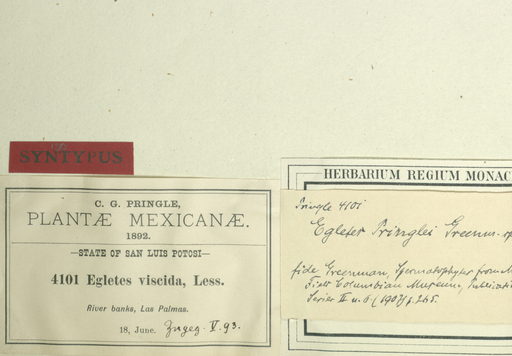 SYNTYPUS
C. G. PRINGLE,
PLANTÆ MEXICANÆ.
1892.
—STATE OF SAN LUIS POTOSI—
4101 Egletes viscida, Less.
River banks, Las Palmas.
18, June. Zugeg. V. 93.
HERBARIUM REGIUM MONAC
Pringle 4101
Egletes Pringlei Greenm. sp
fide Greenman, Spermatophytes from M
Field Columbian Museum, Publicati
Series II n. 6 (1907) p. 265.